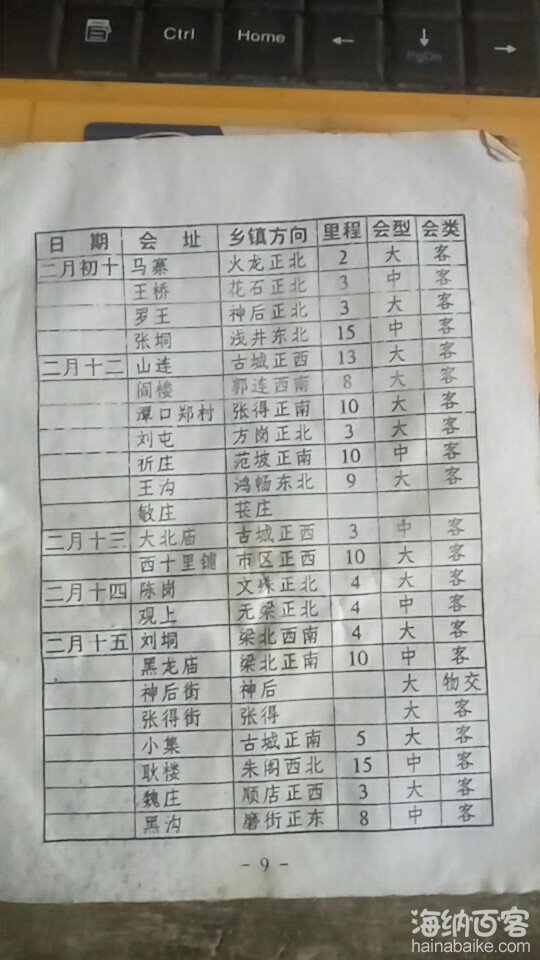 Ctrl
Home
PgDn
日 期 会 址 乡镇方向 里程 会型 会类
二月初十 马寨 火龙正北 2 大 客
王桥 花石正北 3 中 客
罗王 神后正北 3 大 客
张垌 浅井东北 15 中 客
二月十二 山连 古城正西 13 大 客
阎楼 郭连西南 8 大 客
潭口郑村 张得正南 10 大 客
刘屯 方岗正北 3 大 客
祈庄 范坡正南 10 中 客
王沟 鸿畅东北 9 大 客
敏庄 苌庄
二月十三 大北庙 古城正西 3 中 客
西十里铺 市区正西 10 大 客
二月十四 陈岗 文殊正北 4 大 客
观上 无梁正北 4 中 客
二月十五 刘垌 梁北西南 4 大 客
黑龙庙 梁北正南 10 中 客
神后街 神后 大 物交
张得街 张得 大 客
小集 古城正南 5 大 客
耿楼 朱阁西北 15 中 客
魏庄 顺店正西 3 大 客
黑沟 磨街正东 8 中 客
- 9 -
海纳百客
hainabaike.com